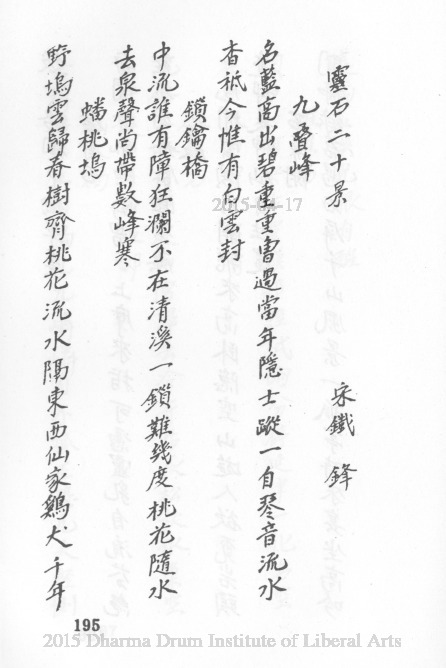 靈石二十景
宋鐵鋒
九叠峰
名藍高出碧重重曾過當年隱士蹤一自琴音流水
杳祗今惟有白雲封
鎖鑰橋
中流誰有障狂瀾不在清溪一鎖難幾度桃花隨水
去泉聲尚帶數峰寒
蟠桃塢
野塢雲歸春樹齊桃花流水隔東西仙家鷄犬千年
195
2015-04-17
2015 Dharma Drum Institute of Liberal Arts